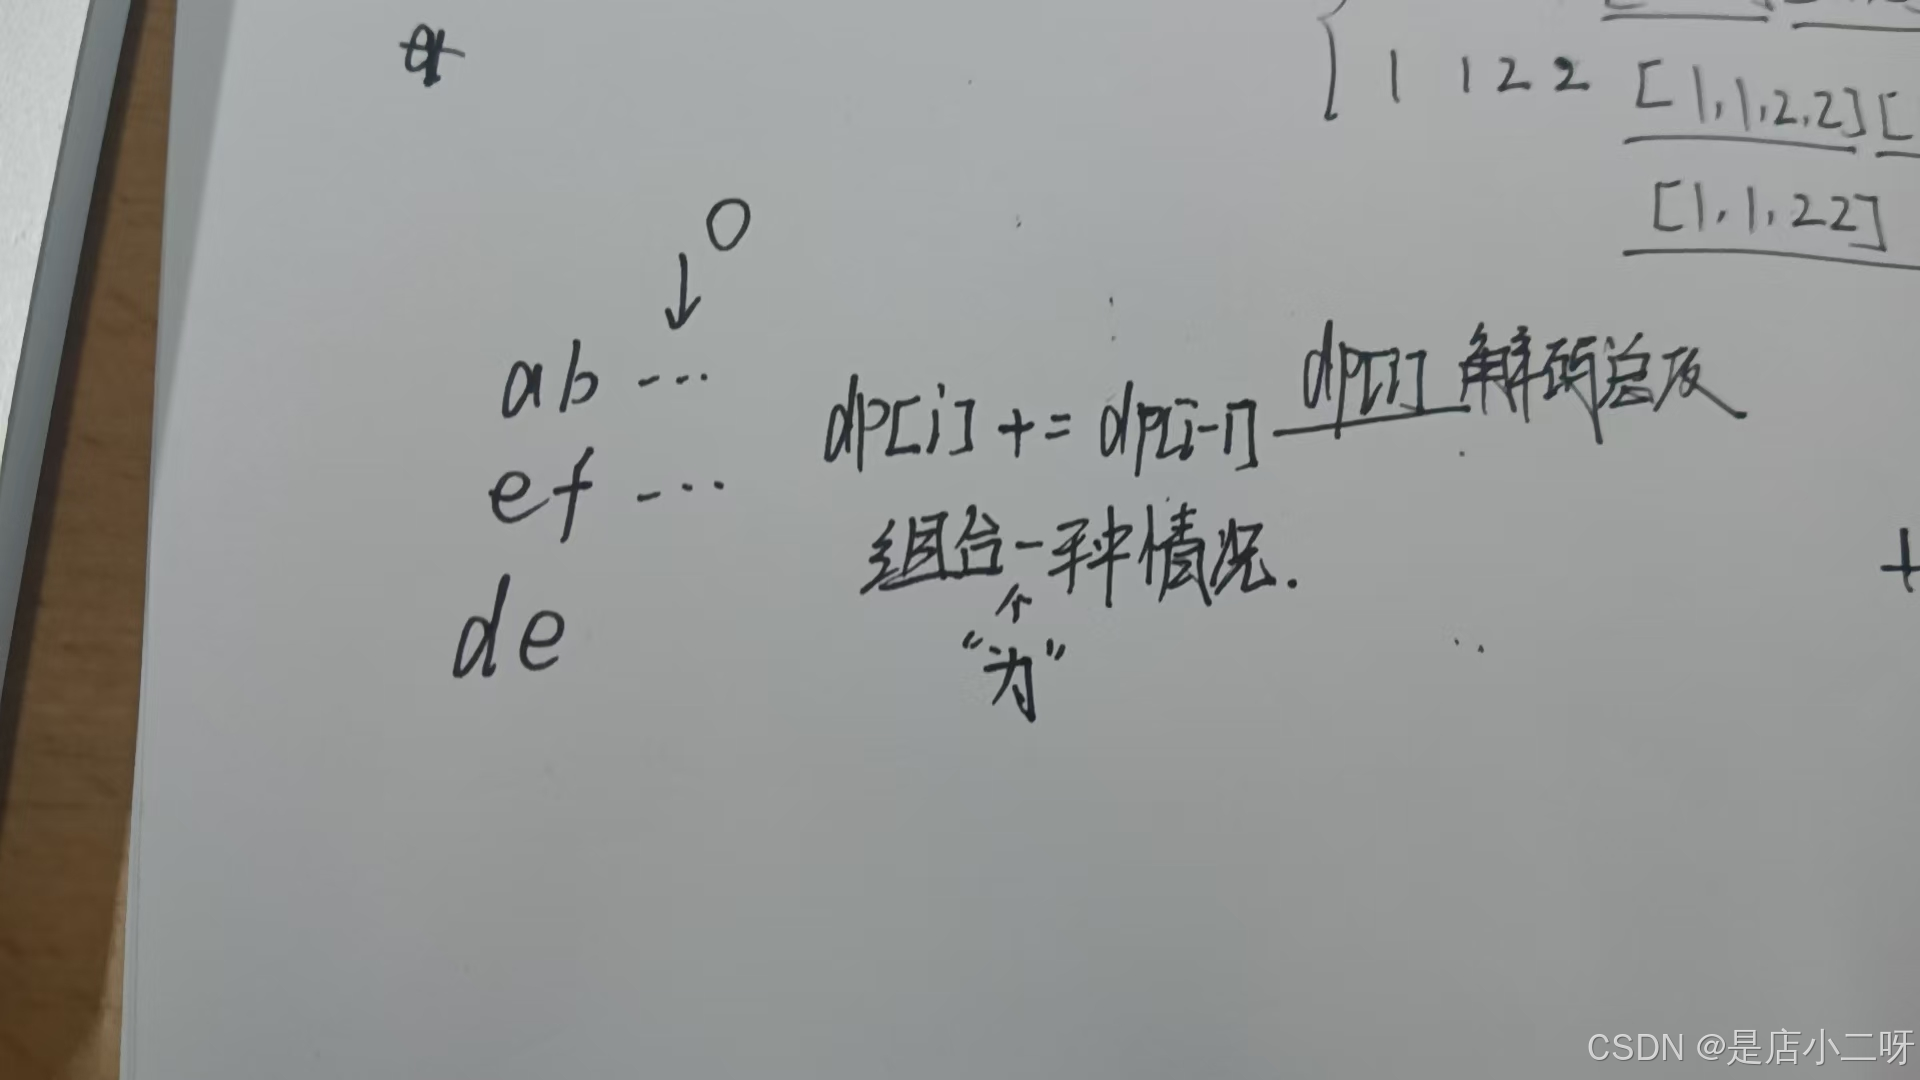 1 1 2 2 [1,1,2,2] [
[1,1,22]
0
↓
ab ...
dp[i] += dp[i-1] dp[i] 解码总数
ef ...
组合一种情况.
"为"
de
+
CSDN @是店小二呀